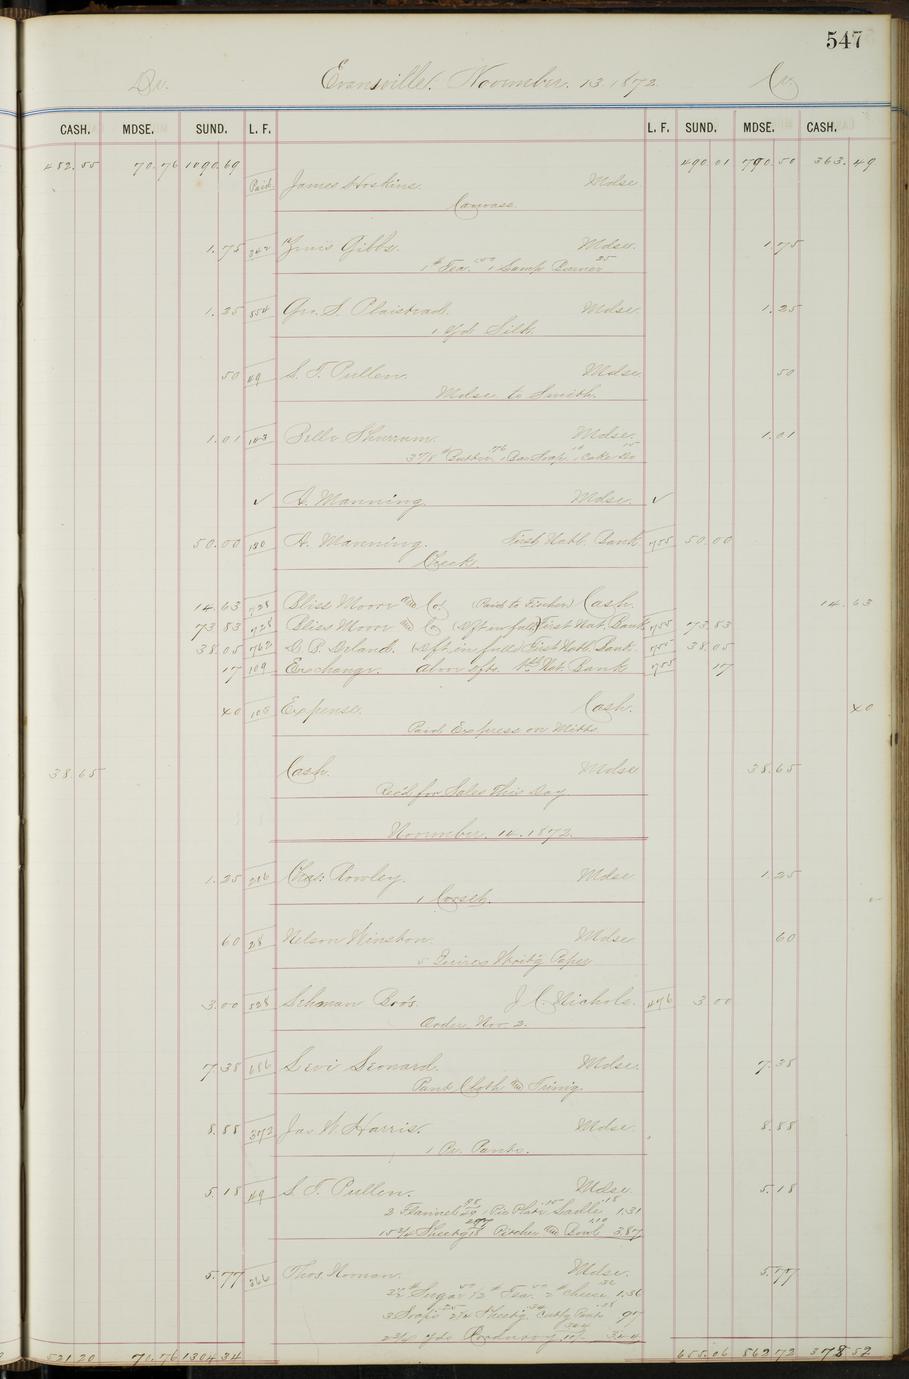 547
Dr. Evansville, November. 13. 1872. Cr.
CASH. MDSE. SUND. L. F. L. F. SUND. MDSE. CASH.
482.55 70.76 1090.69 490.01 790.50 363.49
Paid James Hoskins. Mdse
Canvass.
1.75 Gibbs. Mdse. 1.75
1 # Tea. 1 Lamp Burner 25
1.25 554 Geo. S. Plaistead. Mdse 1.25
1 yd Silk
50 49 S. T. Pullen. Mdse 50
Mdse to Smith.
1.01 143 Mdse. 1.01
3 7/8 # Butter, 1 Bar Soap, 1 Cake do
✓ A. Manning. Mdse ✓
50.00 180 A. Manning. First Natl. Bank 755 50.00
Check.
14.63 728 Bliss Moore and Co. (Paid to Fisher) Cash. 14.63
73.83 728 Bliss Moore and Co (Dft in full) First Nat. Bank 755 73.83
38.05 762 Deland. (Dft. in full) First Natl. Bank. 755 38.05
17 109 Exchange. above dfts. 1st Nat. Bank 755 17
40 108 Expense. Cash. 40
Paid Express on Mitts
38.65 Cash. Mdse 38.65
Rec'd for Sales This Day
November. 14. 1872.
1.25 Chas. Rowley. Mdse 1.25
1 Corset.
60 28 Nelson Winston. Mdse. 60
5 Quires Writ'g Paper
3.00 528 Lehman Bro's. J. C. Nichols. 476 3.00
Order Nov 2.
7.38 686 Levi Leonard. Mdse. 7.38
Pant Cloth and Trim'g.
8.88 372 Jas W. Harris. Mdse. 8.88
1 Pr. Pants.
5.18 49 S. T. Pullen. Mdse. 5.18
2 Flannel 1 Pie Plate Ladle 1.31
15 3/4 Sheet'g Pitcher and Bowl 3.87
5.77 366 Thos. Noonan. Mdse. 5.77
Sugar 1/2 # Tea. 2 # Cheese 1.36
3 Soaps Sheet'g 97
yds 3.44
521.20 71.76 1304.34 655.06 862.72 378.52